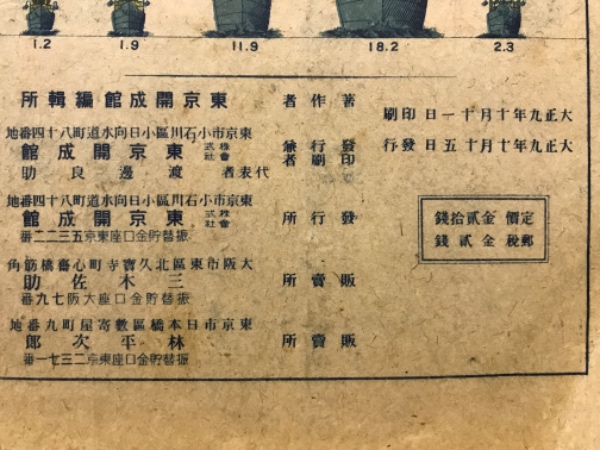 1.2 1.9 11.9 18.2 2.3
大正九年十月十一日印刷
大正九年十月十五日發行
定價金貳拾錢
郵税金貳錢
著作者 東京開成館編輯所
東京市小石川區小日向水道町八十四番地
發行兼印刷者 株式會社 東京開成館
代表者 渡邊良助
東京市小石川區小日向水道町八十四番地
發行所 株式會社 東京開成館
振替貯金口座東京五三二二番
大阪市東區北久寶寺町心齋橋筋角
販賣所 三木佐助
振替貯金口座大阪七九番
東京市日本橋區數寄屋町九番地
販賣所 林平次郎
振替貯金口座東京二三七一番